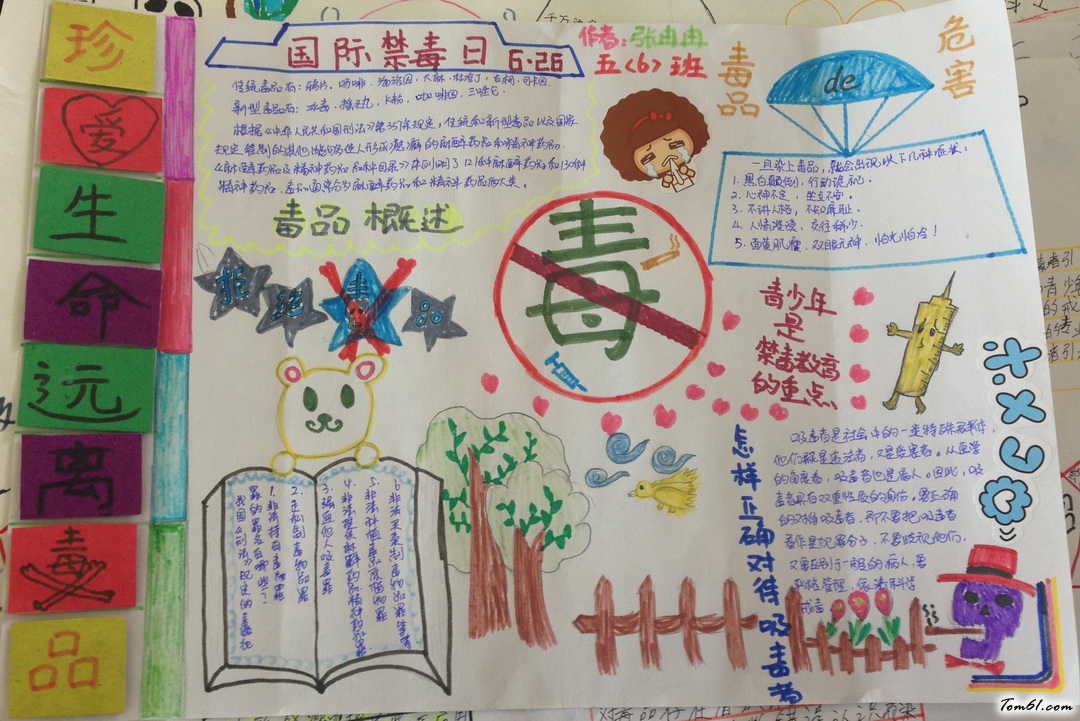 珍
爱
生
命
远
离
毒
品
国际禁毒日 6·26
作者：张冉冉
五〈6〉班
毒品
de
危害
传统毒品有：鸦片、吗啡、海洛因、大麻、杜冷丁、古柯、可卡因
新型毒品有：冰毒、摇头丸、K粉、咖啡因、三唑仑。
根据《中华人民共和国刑法》第357条规定，传统和新型毒品以及国家
规定管制的其他能够使人形成瘾癖的麻醉药品和精神药品。
《麻醉药品及精神药品品种目录》中列明了121种麻醉药品和130种
精神药品。毒品通常分为麻醉药品和精神药品两大类。
毒品概述
一旦染上毒品，就会出现以下几种症状：
1. 黑白颠倒，行动诡秘。
2. 心神不定，坐立不安。
3. 不讲人格，不知廉耻。
4. 人情淡漠，交往稀少。
5. 面黄肌瘦，双眼无神，怕光怕冷！
拒
绝
毒
品
毒
青少年
是
禁毒教育
的重点
怎样正确对待吸毒者
吸毒者是社会中的一类特殊群体，
他们既是违法者，又是受害者，从医学
的角度看，吸毒者也是病人。因此，吸
毒者具有双重性质的身份，要正确
的对待吸毒者，即不要把吸毒者
看作是犯罪分子，不要歧视他们，
又要区别于一般的病人，要
严格管理，依靠科学
戒毒
我国《刑法》规定的毒品犯
罪的罪名有哪些？
1. 非法持有毒品罪
2. 走私制毒物品罪
3. 强迫他人吸毒罪
Tom61.com